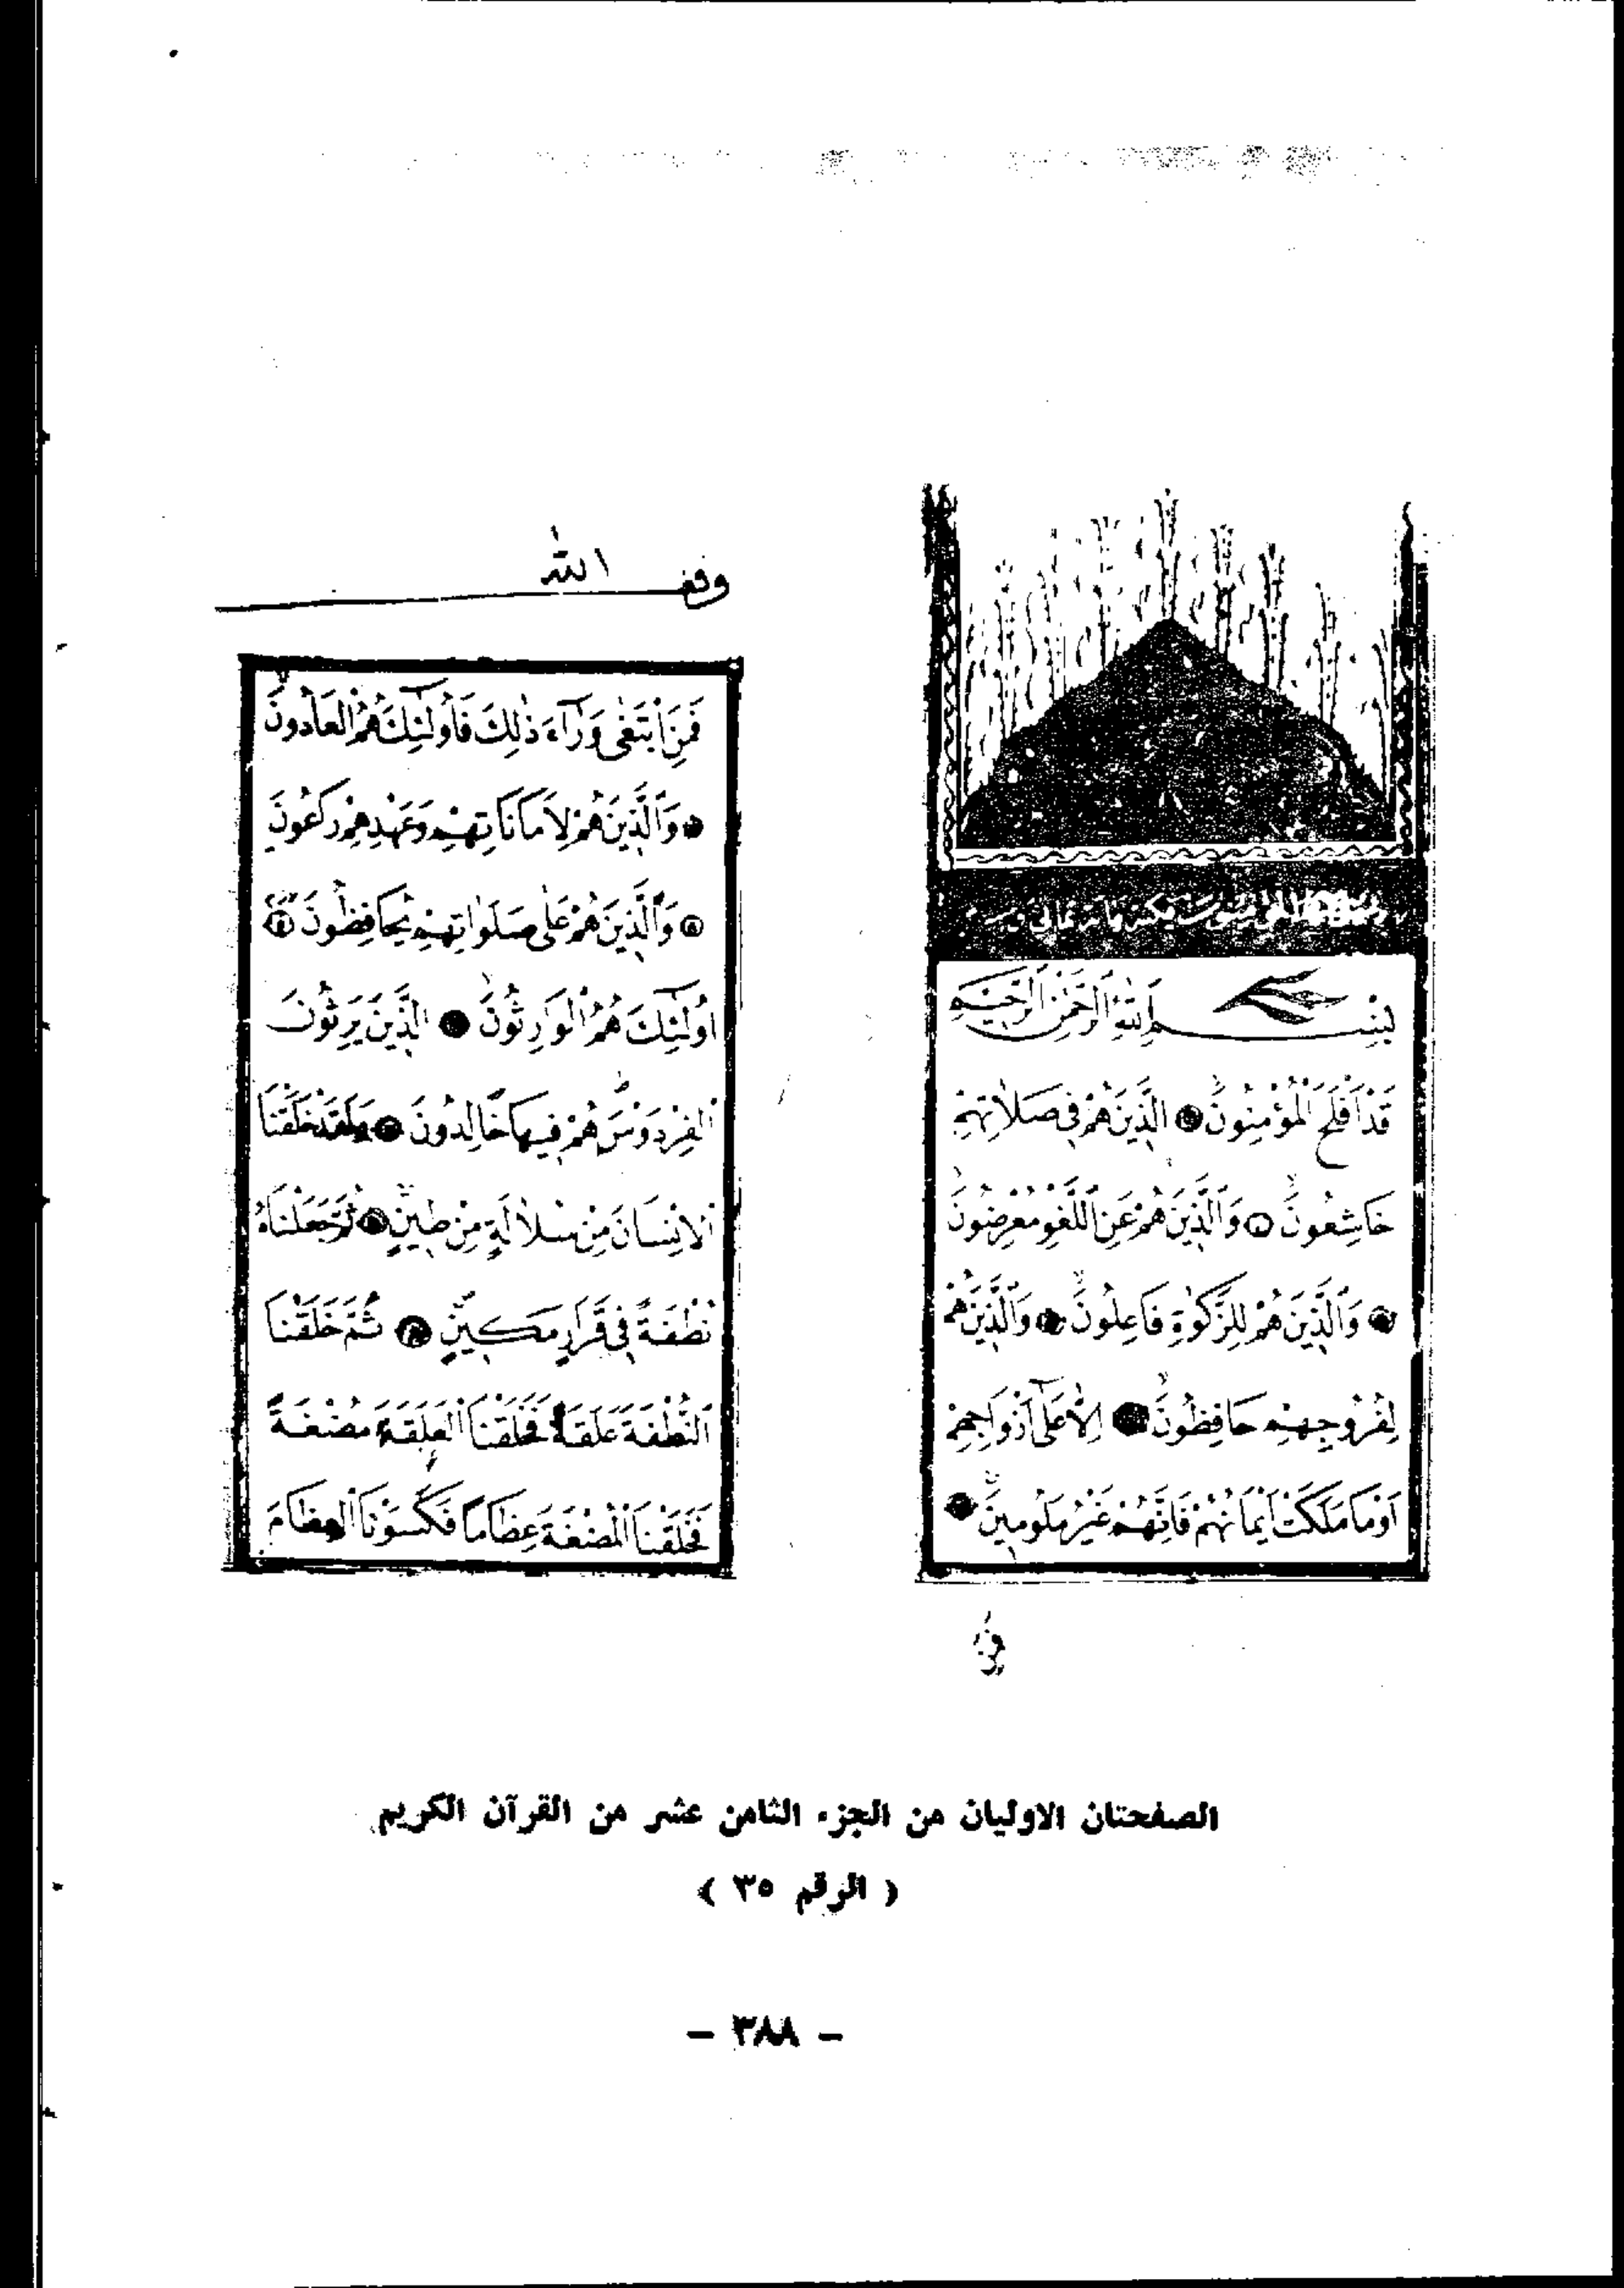 بِسْمِ اللّٰهِ الرَّحْمٰنِ الرَّحِيْمِ
قَدْ اَفْلَحَ الْمُؤْمِنُونَ الَّذِينَ هُمْ فِى صَلَاتِهِمْ
خَاشِعُونَ وَالَّذِينَ هُمْ عَنِ اللَّغْوِ مُعْرِضُونَ
وَالَّذِينَ هُمْ لِلزَّكٰوةِ فَاعِلُونَ وَالَّذِينَ هُمْ
لِفُرُوجِهِمْ حَافِظُونَ اِلَّا عَلٰٓى اَزْوَاجِهِمْ
اَوْ مَا مَلَكَتْ اَيْمَانُهُمْ فَاِنَّهُمْ غَيْرُ مَلُومِينَ
فمن
وقف الله
فَمَنِ ابْتَغٰى وَرَآءَ ذٰلِكَ فَاُولٰٓئِكَ هُمُ الْعَادُونَ
وَالَّذِينَ هُمْ لِاَمَانَاتِهِمْ وَعَهْدِهِمْ رٰعُونَ
وَالَّذِينَ هُمْ عَلٰى صَلَوَاتِهِمْ يُحَافِظُونَ
اُولٰٓئِكَ هُمُ الْوَارِثُونَ الَّذِينَ يَرِثُونَ
الْفِرْدَوْسَ هُمْ فِيهَا خَالِدُونَ وَلَقَدْ خَلَقْنَا
الْاِنْسَانَ مِنْ سُلَالَةٍ مِنْ طِينٍ ثُمَّ جَعَلْنَاهُ
نُطْفَةً فِى قَرَارٍ مَكِينٍ ثُمَّ خَلَقْنَا
النُّطْفَةَ عَلَقَةً فَخَلَقْنَا الْعَلَقَةَ مُضْغَةً
فَخَلَقْنَا الْمُضْغَةَ عِظَامًا فَكَسَوْنَا الْعِظَامَ
الصفحتان الاوليان من الجزء الثامن عشر من القرآن الكريم
( الرقم ٣٥ )
– ٣٨٨ –